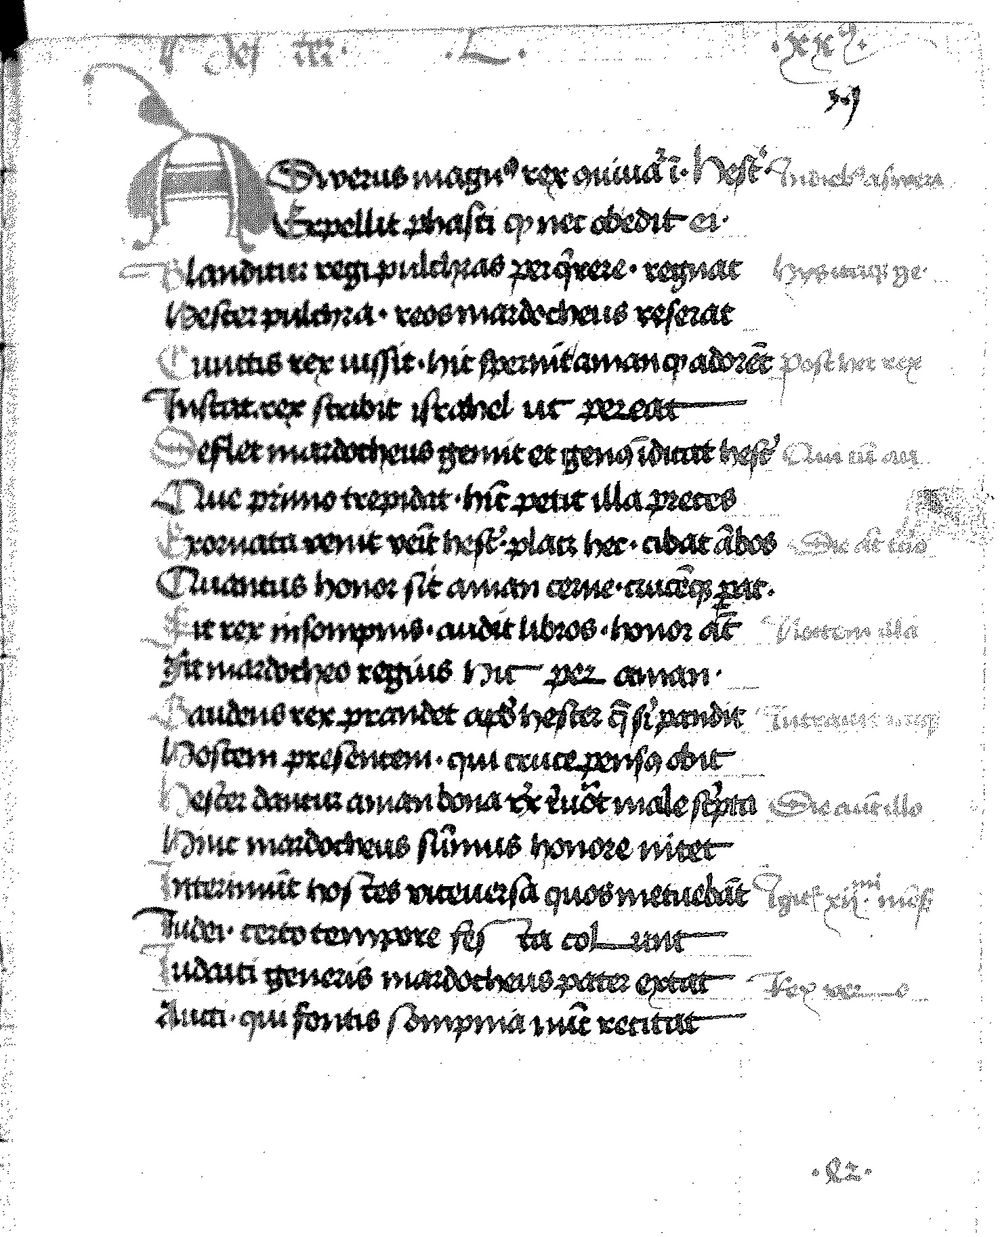 hes ter · L · xxv
Aswerus magnꝰ rex ꝯuiuat᷑ ī · Hest᷑ · In dieb᷒ asweri
Expellit phasti q nec obedit ei ·
Blanditur regi pulchras perq̄rere · regnat
Hester pulchra · reos mardocheus reserat
Cunctis rex iussit · hic spernit aman q adorēt Post hec rex
Instat · rex scribit israhel ut pereat
Deflet mardocheus gemit et genꝰ īdicat hest᷑
Que primo trepidat · hīc petit illa preces
Exornata venit hest᷑ · placz hec · cibat ābos Die āt t'cio
Quantus honor sit aman cerne · crucēqꝫ pat ·
Fit rex insompnis · audit libros · honor āt Noctem illa
Fit mardocheo regius hic per aman ·
Gaudens rex prandet apd' hester q̄ si' pandit Intrauit itaqꝫ
Hostem presentem · qui cruce pensꝰ obit
Hester dantur aman bona male sc'pta Die aūt illo
Hinc mardocheus sūmus honore nitet
Interimūt hostes viceversa quos metuebāt Igit᷑ xii mi mēs
Iudei · certo tempore fes ta col unt
Iudaici generis mardocheus pater extat Rex vero
Aucti · qui fontis sompnia nūc recitat